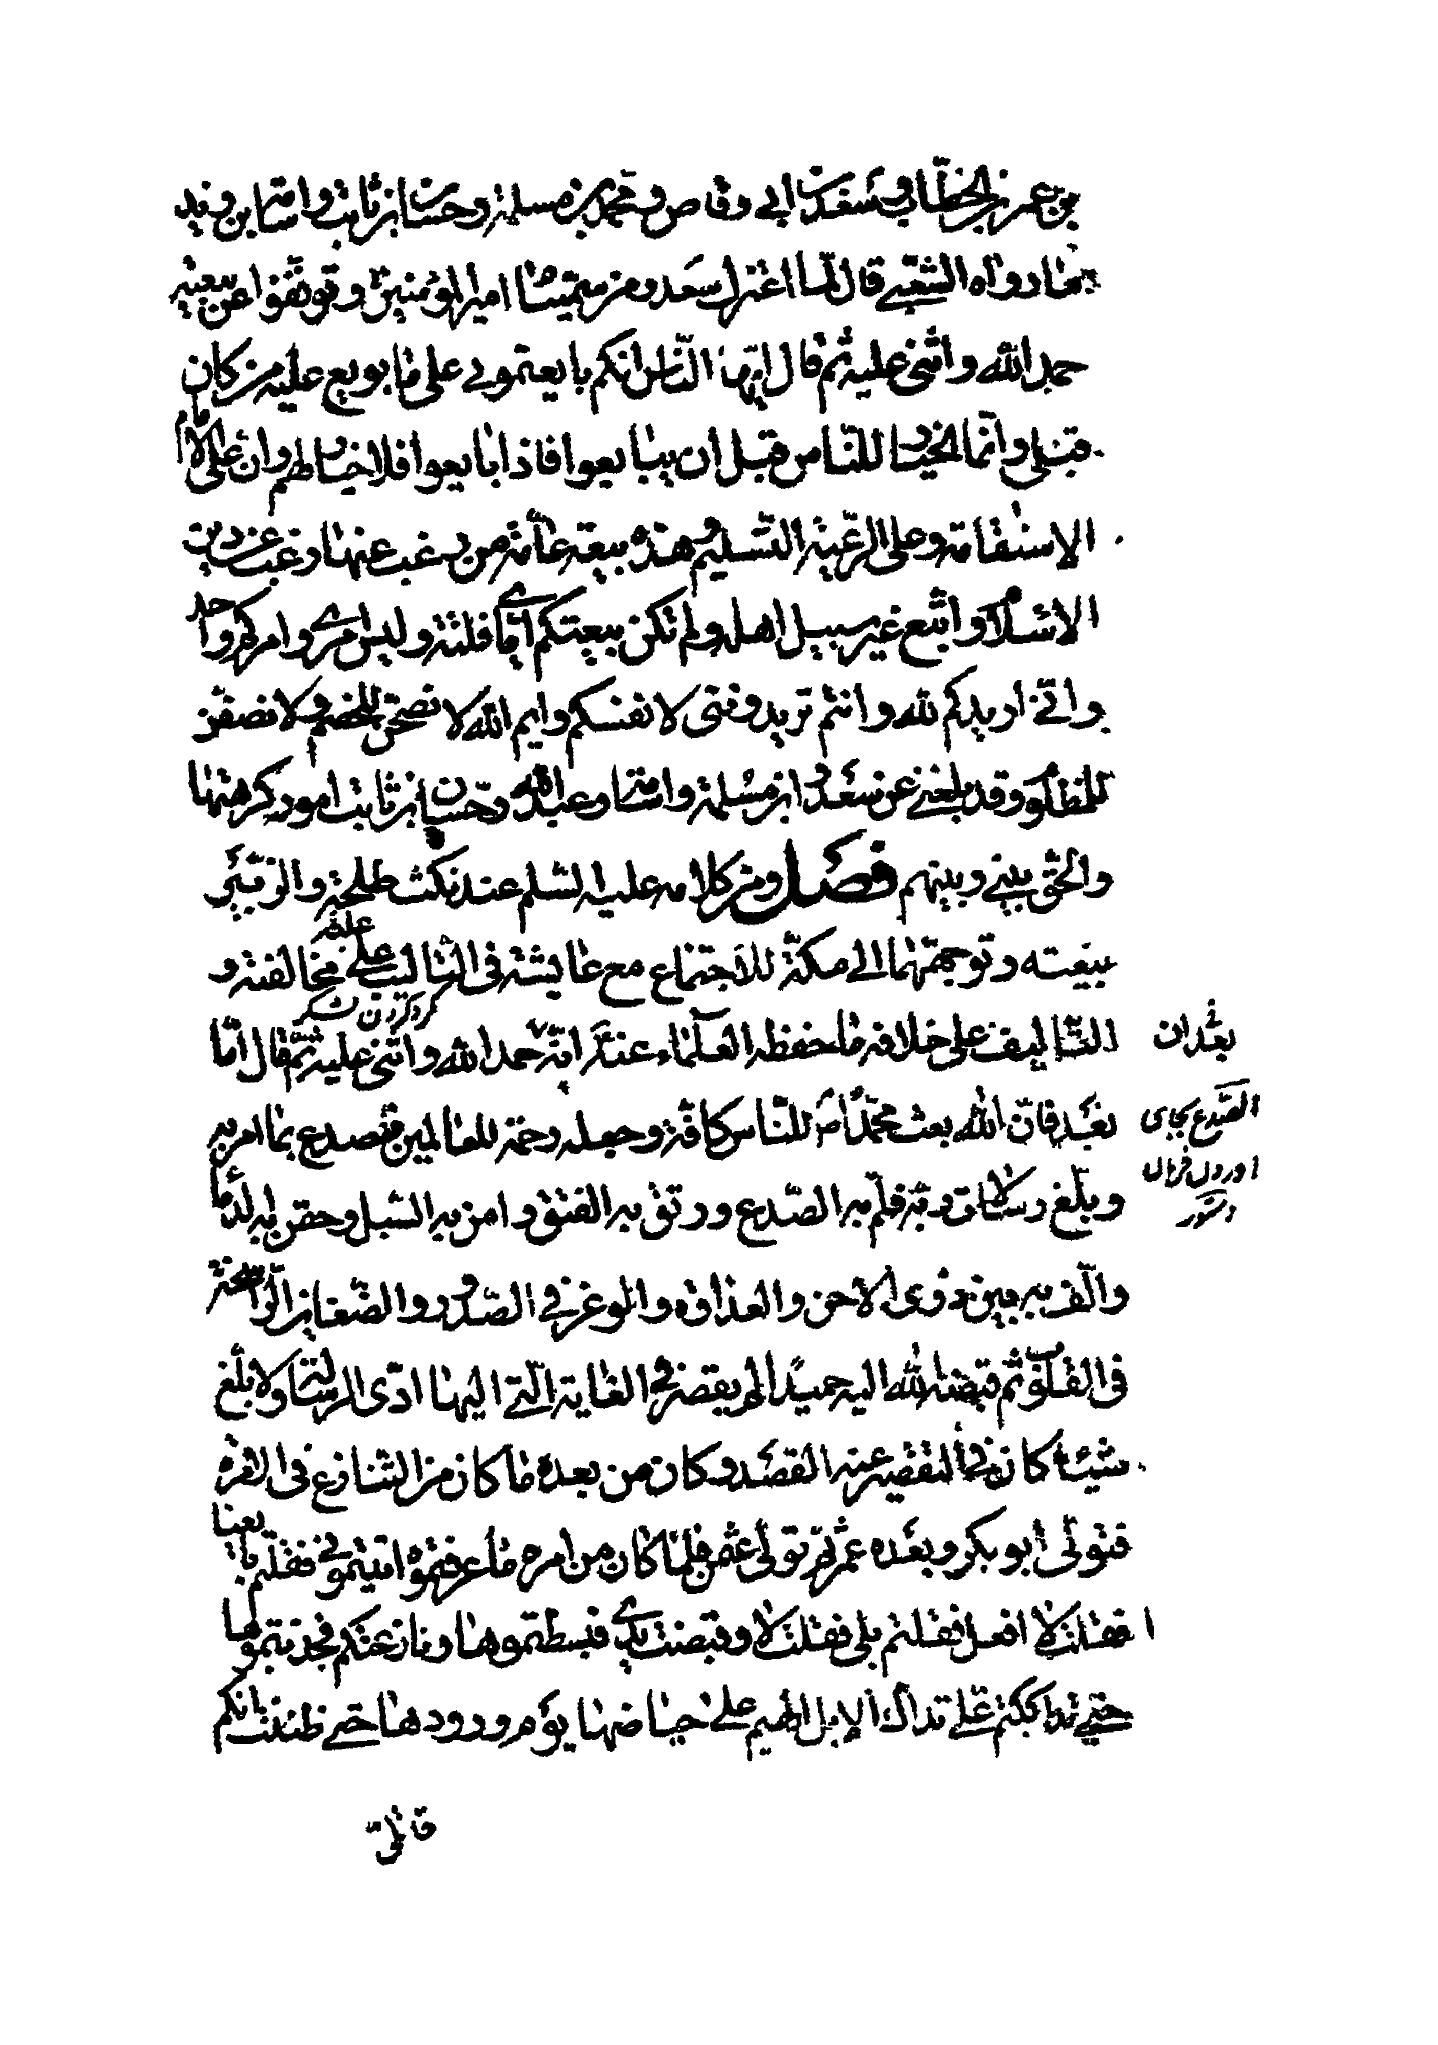 بن عمر بن الخطاب وسعد بن ابي وقاص ومحمد بن مسلمة وحسان بن ثابت واسامة بن زيد
ما رواه الشعبي قال لما اعتزل سعد ومن سميناه امير المؤمنين وتوقفوا عن بيعته
حمد الله واثنى عليه ثم قال ايها الناس انكم بايعتموني على ما بويع عليه من كان
قبلي وانما الخيار للناس قبل ان يبايعوا فاذا بايعوا فلا خيار لهم وان على الامام
الاستقامة وعلى الرعية التسليم وهذه بيعة عامة من رغب عنها رغب عن دين
الاسلام واتبع غير سبيل اهله ولم تكن بيعتكم اياي فلتة وليس امري وامركم واحد
واني اريدكم لله وانتم تريدونني لانفسكم وايم الله لانصحن للخصم ولانصفن
للمظلوم وقد بلغني عن سعد وابن مسلمة واسامة وعبد الله وحسان بن ثابت امور كرهتها
والحق بيني وبينهم فصل ومن كلامه عليه السلم عند نكث طلحة والزبير
بيعته وتوجههما الى مكة للاجتماع مع عايشة في التاليب على مخالفته و
التاليف على خلافه ما حفظه العلماء عنه انه حمد الله واثنى عليه ثم قال اما
بعد فان الله بعث محمدا ص للناس كافة وجعله رحمة للعالمين فصدع بما امر به
وبلغ رسالات ربه فلم به الصدع ورتق به الفتق وامن به السبل وحقن به الدماء
والف به بين ذوى الاحن والعداوه والوغر في الصدور والضغاين الراسخة
في القلوب ثم قبضه الله اليه حميدا لم يقصر في الغاية التي اليها ادى الرسالة ولا بلغ
شيئا كان في التقصير عنه القصد وكان من بعده ما كان من التنازع في الامره
فتولى ابو بكر وبعده عمر ثم تولى عثمن فلما كان من امره ما عرفتموه اتيتموني فقلتم بايعنا
فقلت لا افعل فقلتم بلى فقلت لا وقبضت يدي فبسطتموها ونازعتكم فجذبتموها
حتى تداككتم على تداك الابل الهيم على حياضها يوم ورودها حتى ظننت انكم
قاتلي